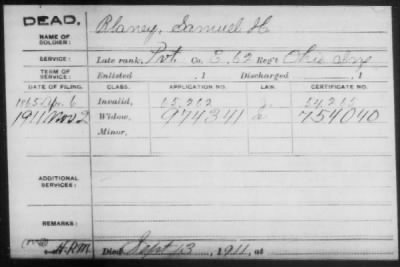 DEAD,
NAME OF SOLDIER: Blaney, Samuel H.
SERVICE: Late rank, Pvt. Co. E, 62 Reg't Ohio Inf
TERM OF SERVICE: Enlisted , 1 Discharged , 1
DATE OF FILING. CLASS. APPLICATION NO. CERTIFICATE NO.
1865 Apr. 6 Invalid, 65,202 54,265
1911 Nov 2 Widow, 974341 754040
Minor,
ADDITIONAL SERVICES:
REMARKS:
H.R.M. Died Sept 13, 1911, at